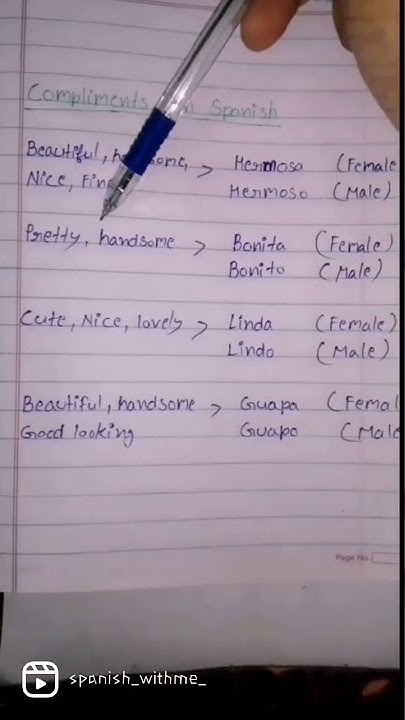 Compliments in Spanish
Beautiful, handsome, > Hermosa (Female
Nice, Fin
Hermoso (Male)
Pretty, handsome > Bonita (Female)
Bonito (Male)
Cute, Nice, lovely > Linda (Female)
Lindo (Male)
Beautiful, handsome > Guapa (Femal
Good looking Guapo (Male
Page No.
spanish_withme_